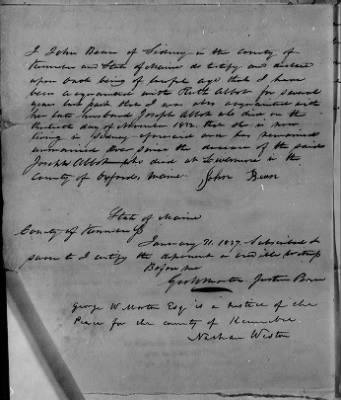 I John Bean of Sidney in the County of
Kennebec and State of Maine do testify and declare
upon oath being of lawful age that I have
been acquainted with Ruth Abbot for several
years last past that I was also acquainted with
her late husband Joseph Abbot who died on the
day of November 18 that she is now
living in Sidney aforesaid and has remained
unmarried ever since the decease of the said
Joseph Abbot who died at Livermore in the
County of Oxford, Maine John Bean
State of Maine
County of Kennebec Ss
January 21. 1837. Subscribed &
sworn to I certify the deponent is credible
Before me
Geo W Morton Justice Peace
George W. Morton Esq is a Justice of the
Peace for the county of Kennebec.
Nathan Weston